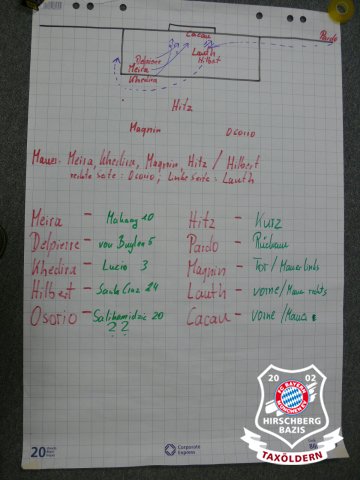 Cacau
Pardo
Delpierre
Lauth
Meira
Hilbert
Khedira
Hitz
Magnin
Osorio
Mauer: Meira, Khedira, Magnin, Hitz / Hilbert
rechte Seite: Osorio; Linke Seite: Lauth
Meira - Makaay 10
Delpierre - van Buyten 5
Khedira - Lucio 3
Hilbert - Santa Cruz 24
Osorio - Salihamidzic 20
??
Hitz - Kurz
Pardo - Rückraum
Magnin - Tor / Mauer links
Lauth - vorne / Mauer rechts
Cacau - vorne / Mauer
20
Corporate
Express
20 02
FC BAYERN
MÜNCHEN
HIRSCHBERG
BAZIS
TAXÖLDERN